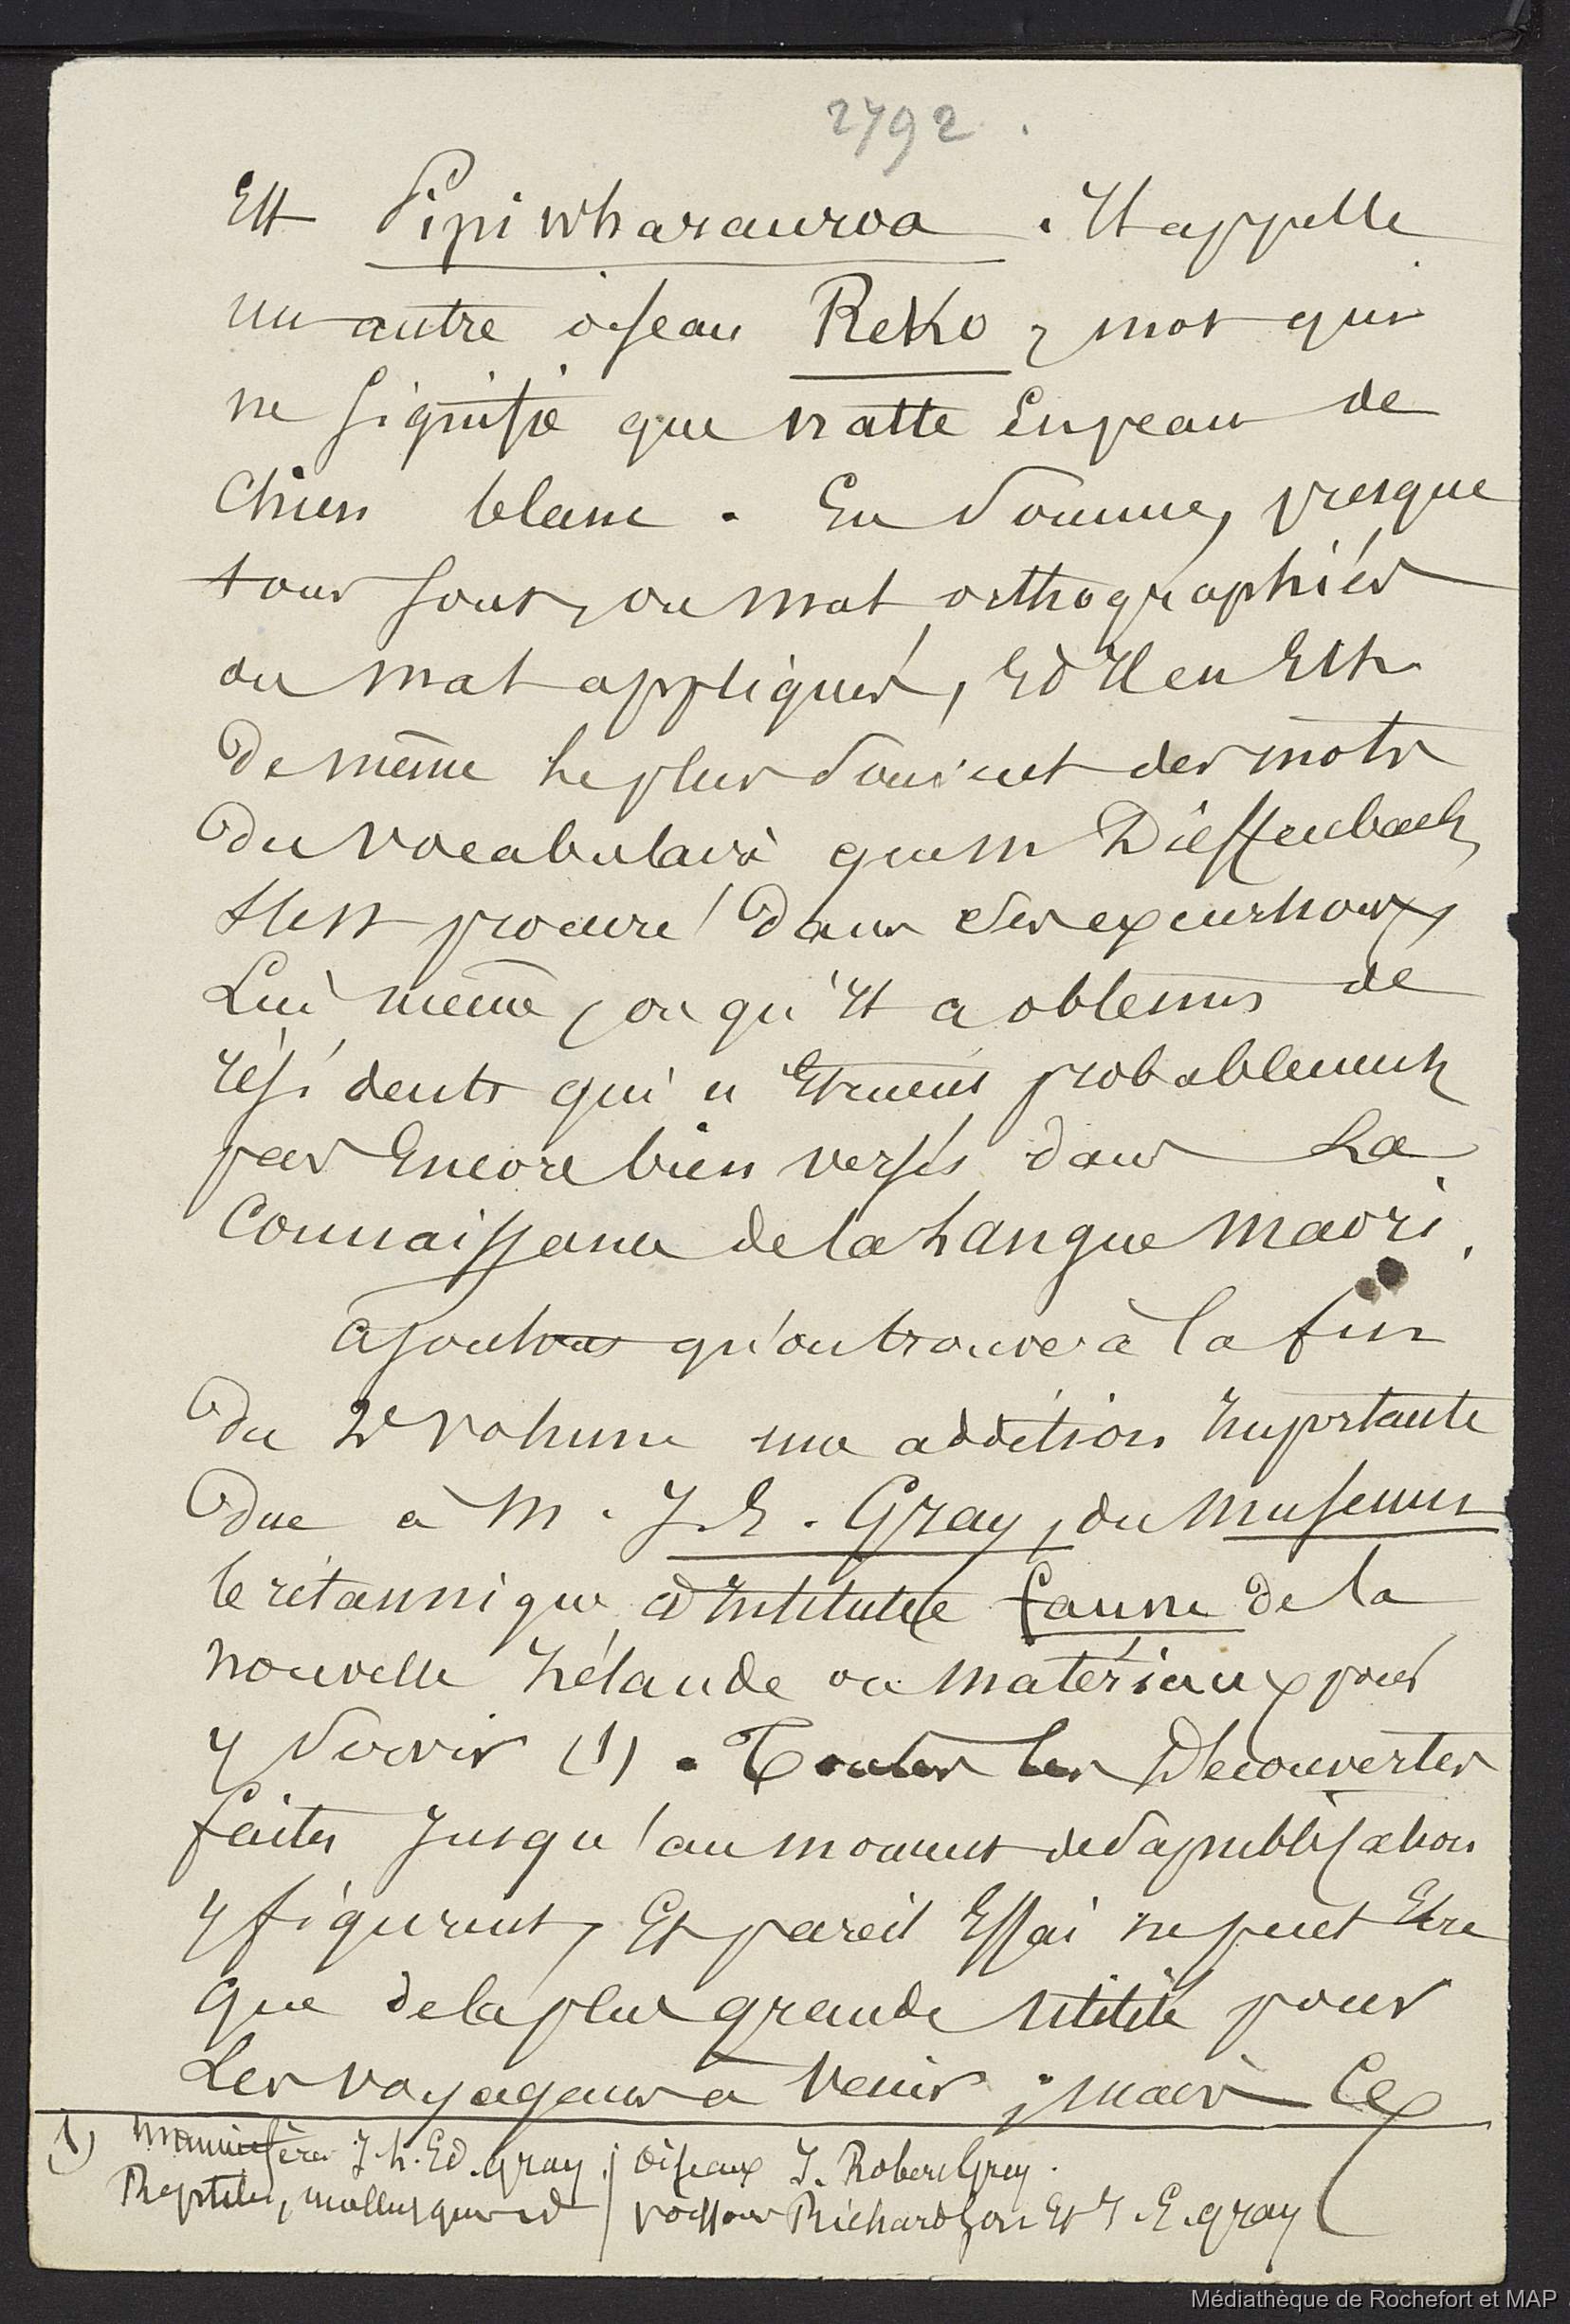 2792.
Est Pipiwharauroa. Il appelle
un autre oiseau Reko, mot qui
ne signifie que natte en peau de
chien blanc. En somme, presque
tous sont, ou mal orthographiés
ou mal appliqués, et il en est
de même le plus souvent des mots
du vocabulaire que M Dieffenbach
s'est procuré dans ses excursions,
lui même, ou qu'il a obtenus de
résidents qui n'étaient probablement
pas encore bien versés dans la
connaissance de la langue maori.
ajoutons qu'on trouve à la fin
du 2e volume une addition importante
due à M. J. E. Gray, du Museum
britannique, intitulée faune de la
nouvelle Zélande ou matériaux pour
y servir (1). Toutes les découvertes
faites jusqu'au moment de sa publication
y figurent, et pareil essai ne peut être
que de la plus grande utilité pour
les voyageurs à venir; mais ce
1) mammifères J. h. Ed. Gray. oiseaux J. Robert Grey.
Reptiles, mollusques id poissons Richardson et J. E. gray
Médiathèque de Rochefort et MAP